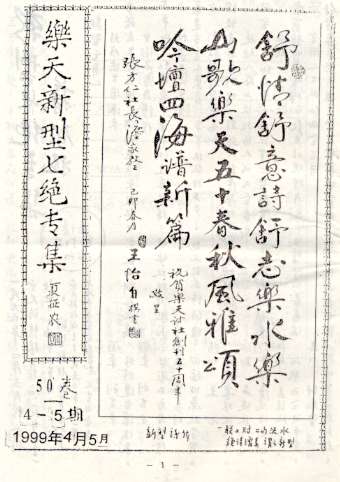 舒情舒意詩舒志樂水樂
山歌樂天五十春秋風雅頌
吟壇四海譜新篇
祝賀樂天詩社創刊五十周年
張方仁社長
己卯春月
王怡自撰書
樂天新型七绝专集
夏征农
50卷
4-5期
1999年4月5月
新型詩行
- 1 -